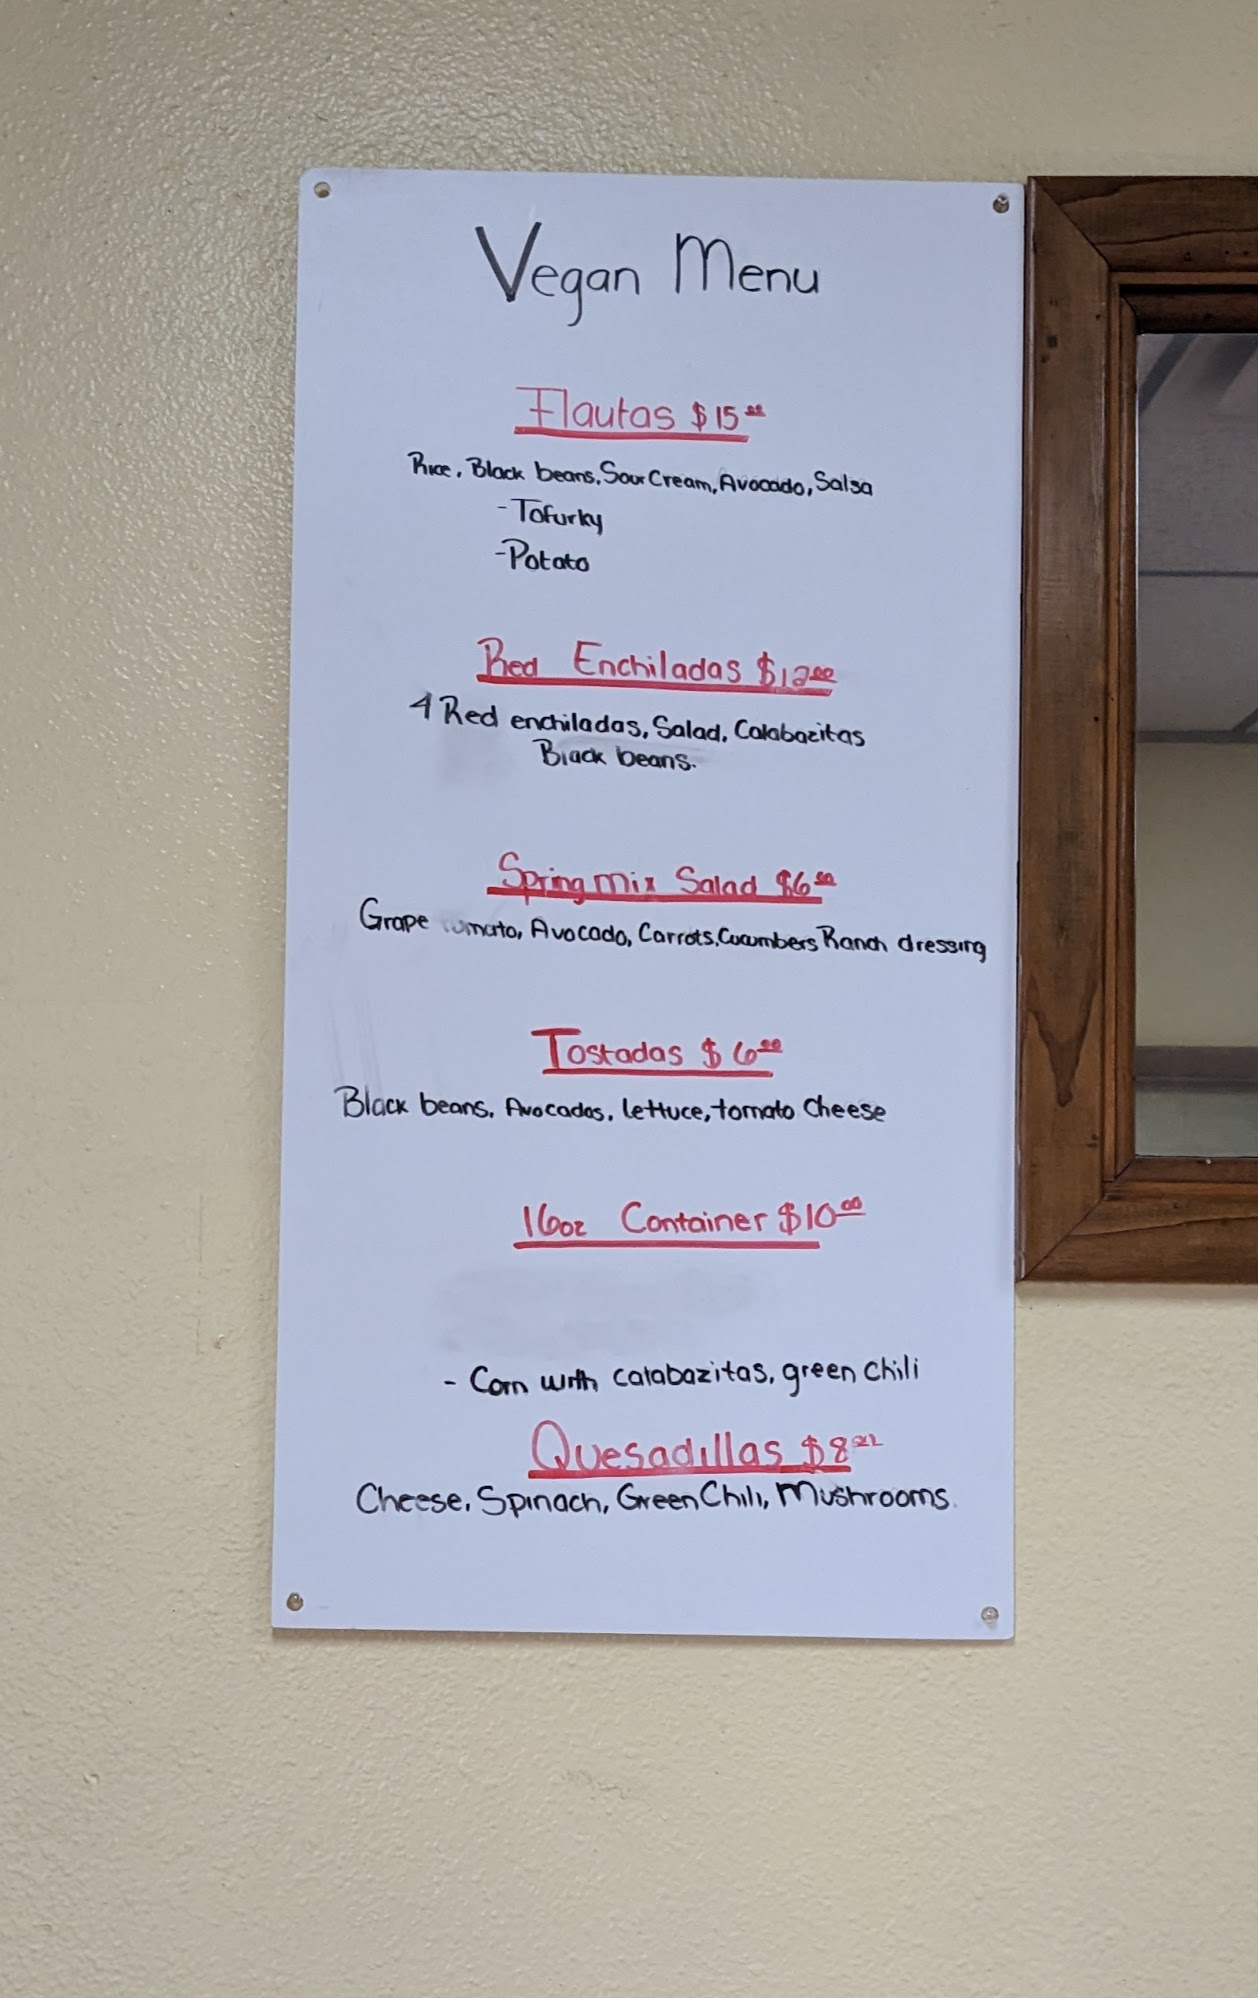 Vegan Menu
Flautas $15.00
Rice, Black beans, Sour Cream, Avocado, Salsa
- Tofurky
- Potato
Red Enchiladas $12.00
4 Red enchiladas, Salad, Calabazitas
Black beans.
Spring mix Salad $6.00
Grape tomato, Avocado, Carrots, Cucumbers Ranch dressing
Tostadas $6.00
Black beans, Avocados, lettuce, tomato Cheese
16oz Container $10.00
- Corn with calabazitas, green chili
Quesadillas $8.00
Cheese, Spinach, Green Chili, Mushrooms.